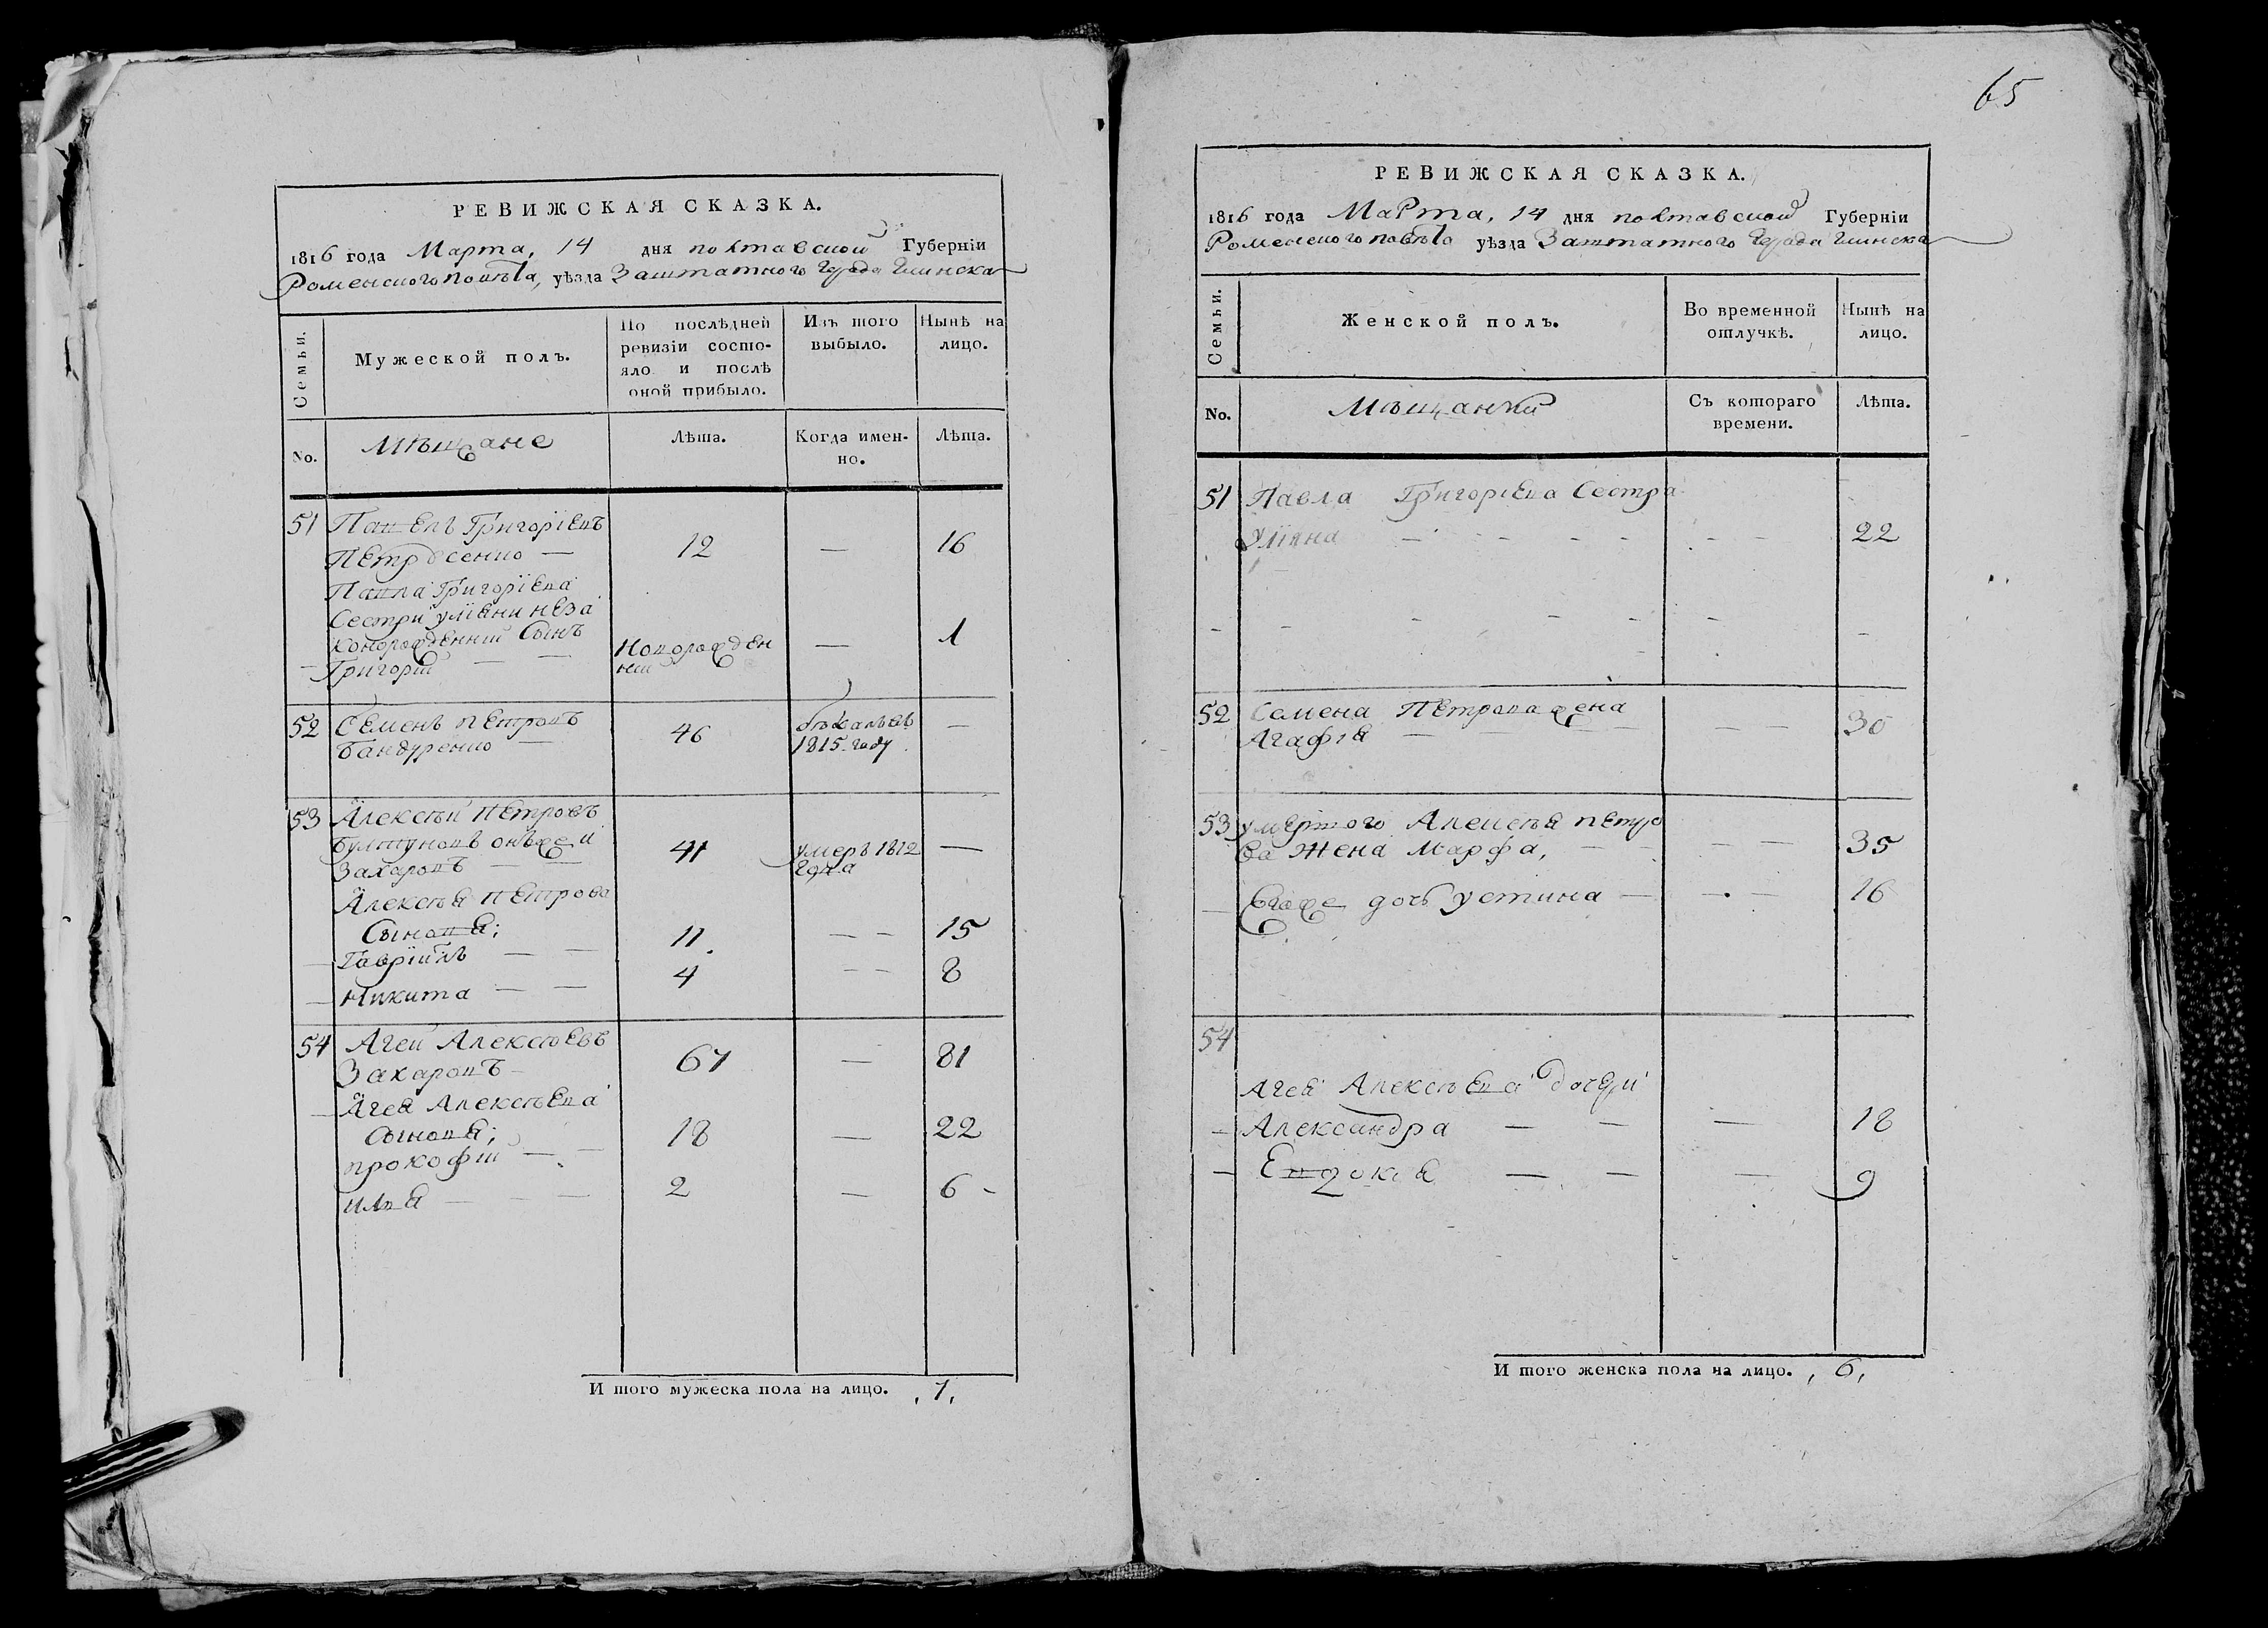 РЕВИЖСКАЯ СКАЗКА.
1816 года Марта, 14 дня полтавской Губерніи
Роменского повѣта, уѣзда Заштатного города Глинска
Семьи.
Мужеской полъ.
По послѣдней ревизіи состояло и послѣ оной прибыло.
Изъ того выбыло.
Нынѣ на лицо.
No.
Мѣщане
Лѣта.
Когда именно.
Лѣта.
51 Павелъ Григоріевъ
Петрусенко — 12 — 16
Павла Григоріева
Сестри уліяни неза
конорожденній Сынъ
Григорій — — Новорожден
ній — 1
52 Семенъ петровъ
Бандуренко — 46 бѣжалъ въ
1815 году —
53 Алексѣй Петровъ
Булгуновъ онъже и
Захаровъ — — 41 умеръ 1812
года —
Алексѣя Петрова
Сыновя;
Гавріилъ — — 11 — — 15
Никита — — 4 — — 8
54 Агей Алексѣевъ
Захаровъ 67 — 81
Агея Алексѣева
Сыновя;
прокофій — — 18 — 22
илья — — — 2 — 6
И того мужеска пола на лицо. 7,
65
РЕВИЖСКАЯ СКАЗКА.
1816 года Марта, 14 дня полтавской Губерніи
Роменского повѣта уѣзда Заштатного города Глинска
Семьи.
Женской полъ.
Во временной отлучкѣ.
Нынѣ на лицо.
No.
Мѣщанки
Съ котораго времени.
Лѣта.
51 Павла Григоріева Сестра
Уліяна 22
52 Семена Петрова жена
Агафія — — 30
53 умертого Алексѣя петро
ва Жена Марфа, — — 35
Егоже дочь устина — — 16
54
Агея Алексѣева дочери
Александра — — — 18
Евдокія — — — 9
И того женска пола на лицо. , 6,